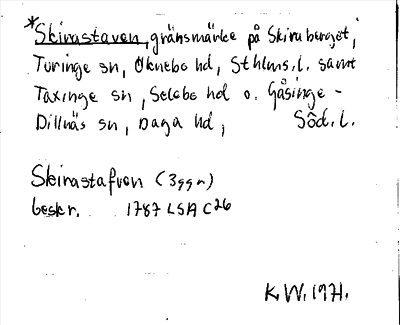 *Skirastaven, gränsmärke på Skiraberget,
Turinge sn, Öknebo hd, Sthlms. l. samt
Taxinge sn, Selebo hd o. Gåsinge-
Dillnäs sn, Daga hd, Söd. l.
Skirastafven (3ggr)
beskr. 1787 LSA C26
K.W. 1971.